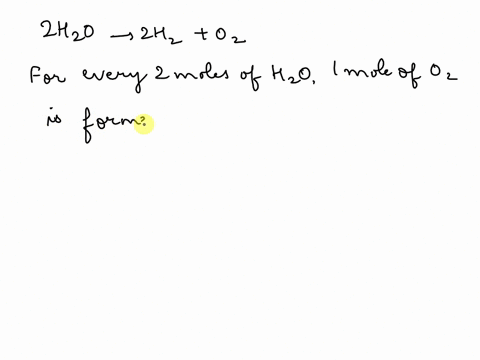 2H₂O → 2H₂ + O₂
For every 2 moles of H₂O, 1 mole of O₂
is form